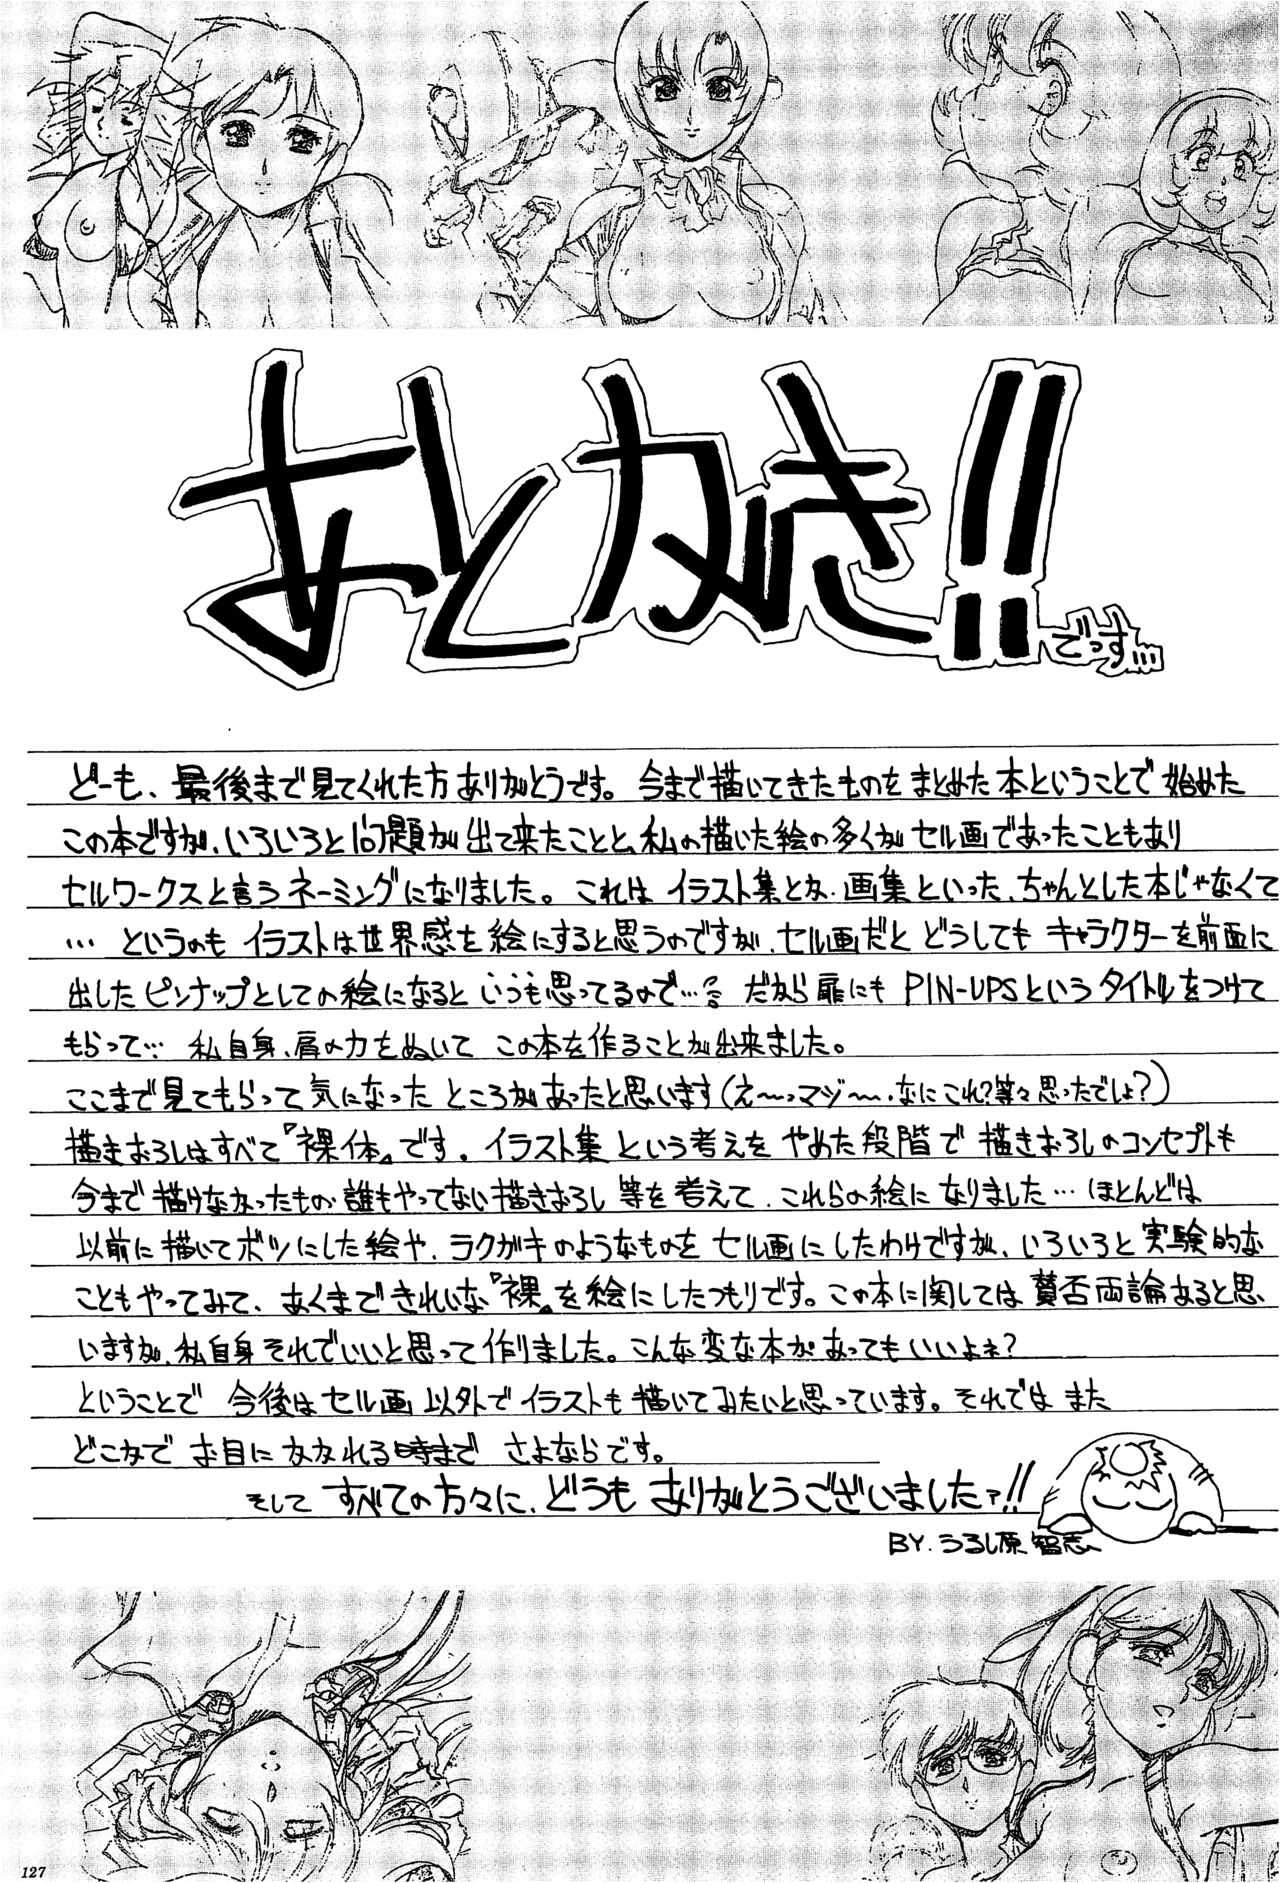 あとがき!!
でっす…
どーも、最後まで見てくれた方ありがとうです。今まで描いてきたものをまとめた本ということで始めた
この本ですが、いろいろと問題が出て来たことと、私の描いた絵の多くがセル画であったこともあり
セルワークスと言うネーミングになりました。これはイラスト集とか・画集といった、ちゃんとした本じゃなくて
… というのもイラストは世界感を絵にすると思うのですが、セル画だとどうしてもキャラクターを前面に
出したピンナップとしての絵になるといつも思ってるので… だから扉にもPIN-UPSというタイトルをつけて
もらって… 私自身、肩の力をぬいてこの本を作ることが出来ました。
ここまで見てもらって気になったところがあったと思います(え〜っマジ〜、なにこれ?等々思ったでしょ?)
描きおろしはすべて『裸体』です。イラスト集という考えをやめた段階で描きおろしのコンセプトも
今まで描けなかったもの・誰もやってない描きおろし等を考えて、これらの絵になりました… ほとんどは
以前に描いてボツにした絵や、ラクガキのようなものをセル画にしたわけですが、いろいろと実験的な
こともやってみて、あくまできれいな『裸』を絵にしたつもりです。この本に関しては賛否両論あると思
いますが、私自身それでいいと思って作りました。こんな変な本があってもいいよネ?
ということで今後はセル画以外でイラストも描いてみたいと思っています。それではまた
どこかでお目にかかれる時までさよならです。
そしてすべての方々に、どうもありがとうございましたァ!!
BY.うるし原智志
127